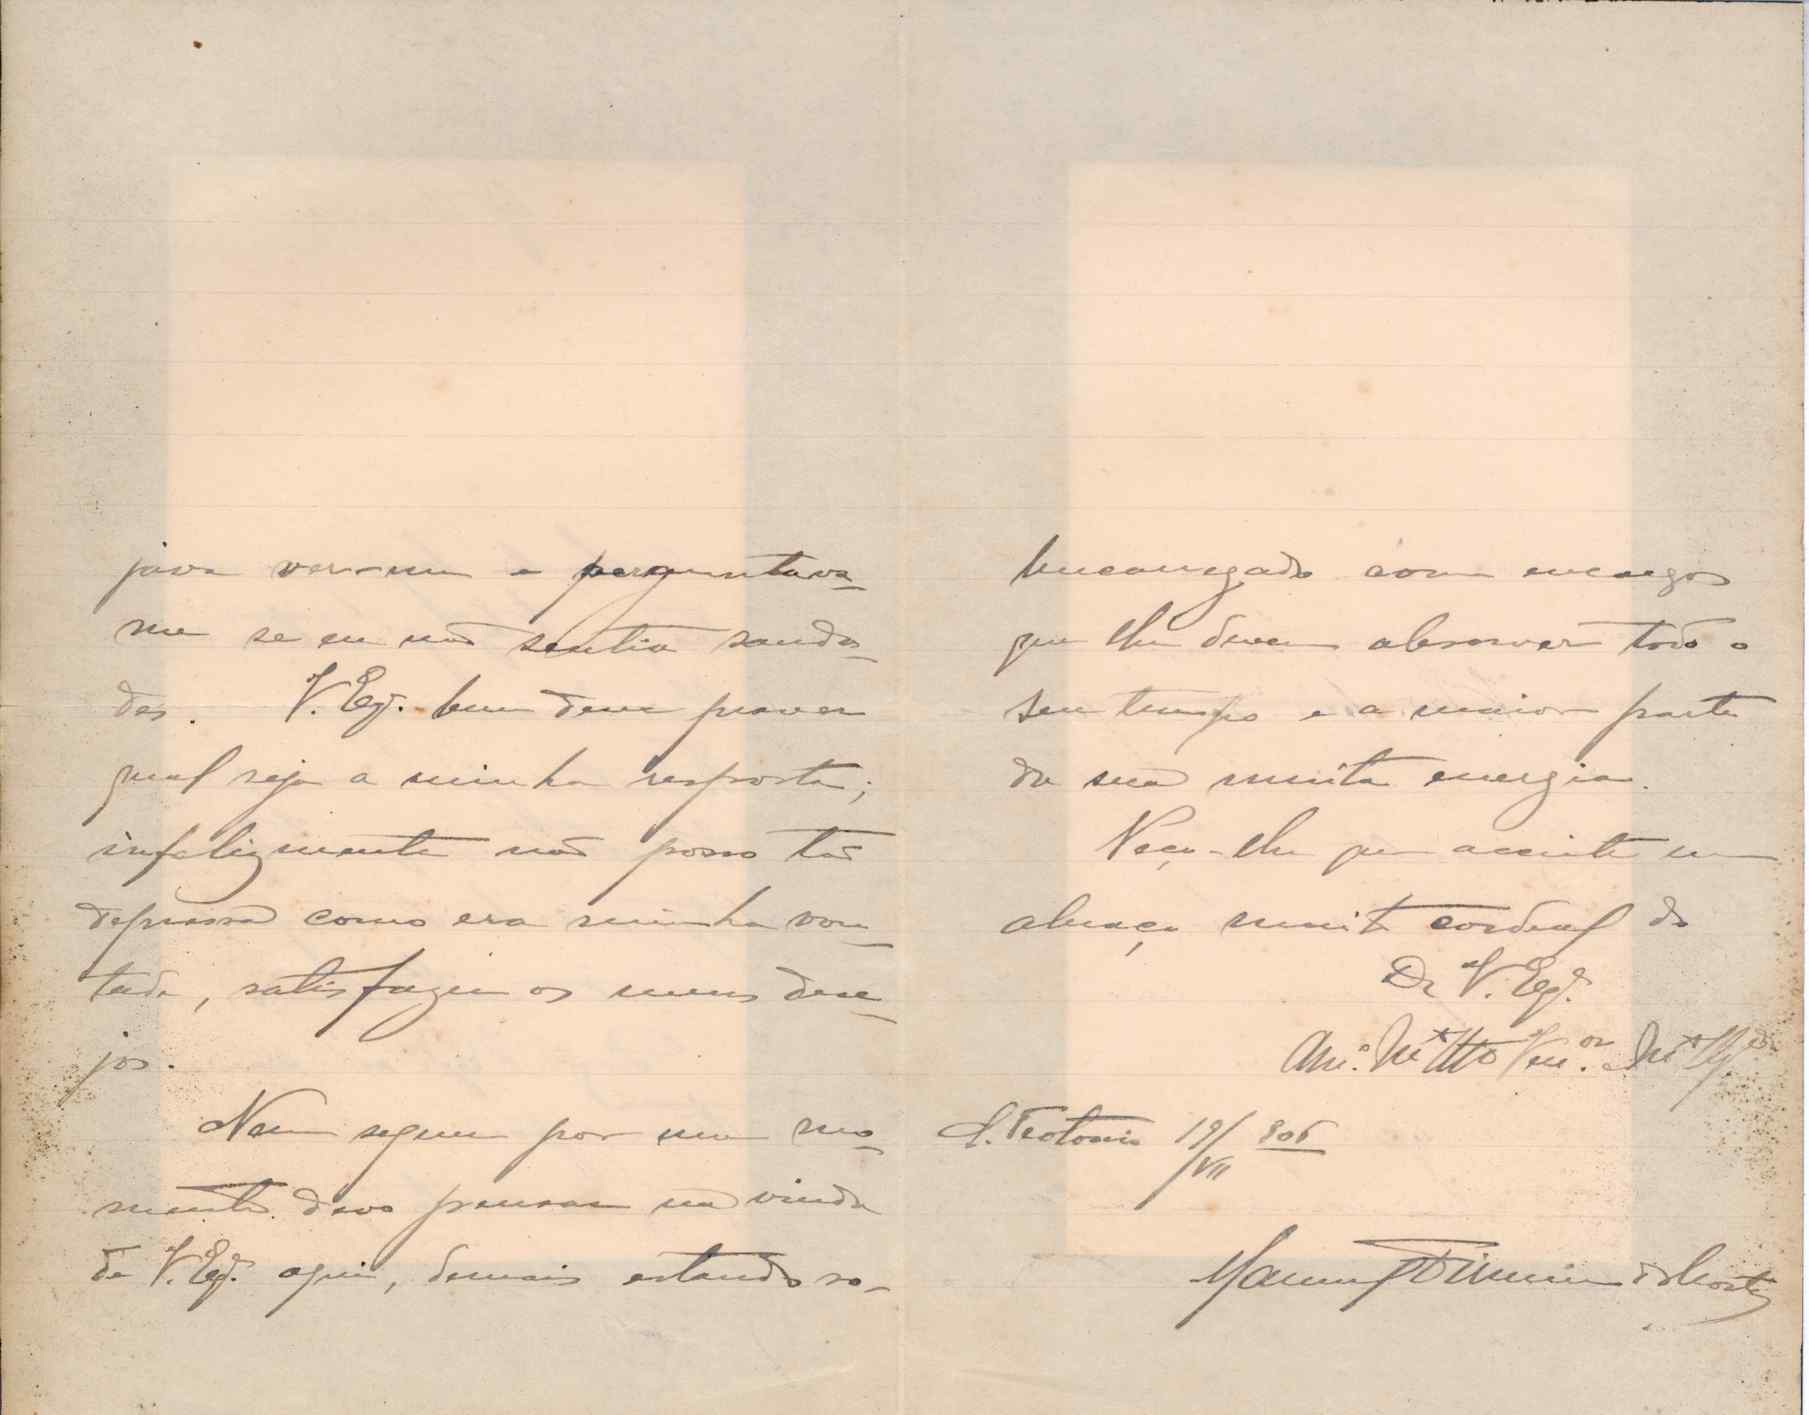 java ver-me e perguntava-
me se eu não sentia sauda-
des. V. Exª. bem deve prever
qual seja a minha resposta;
infelizmente não posso tão
depressa como era minha von-
tade, satisfazer os meus dese-
jos.
Nem sequer por um mo-
mento devo pensar na vinda
de V. Exª. aqui, demais estando so-
brecarregado com encargos
que lhe devem absorver todo o
seu tempo e a maior parte
da sua muita energia.
Peço-lhe que acceite um
abraço muito cordeal do
De V. Exª.
Am.º M.to Att.o Ven.or
S. Teotonio 19/VII 906
Manuel Firmino da Costa